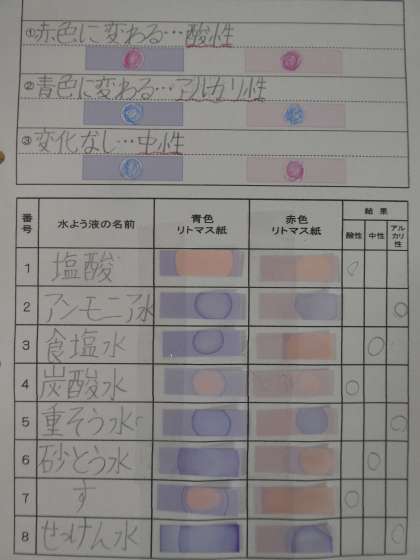 ①赤色に変わる…酸性
②青色に変わる…アルカリ性
③変化なし…中性
番号 水よう液の名前 青色リトマス紙 赤色リトマス紙 結果 酸性 中性 アルカリ性
1 塩酸 ○
2 アンモニア水 ○
3 食塩水 ○
4 炭酸水 ○
5 重そう水 ○
6 砂とう水 ○
7 す ○
8 せっけん水 ○